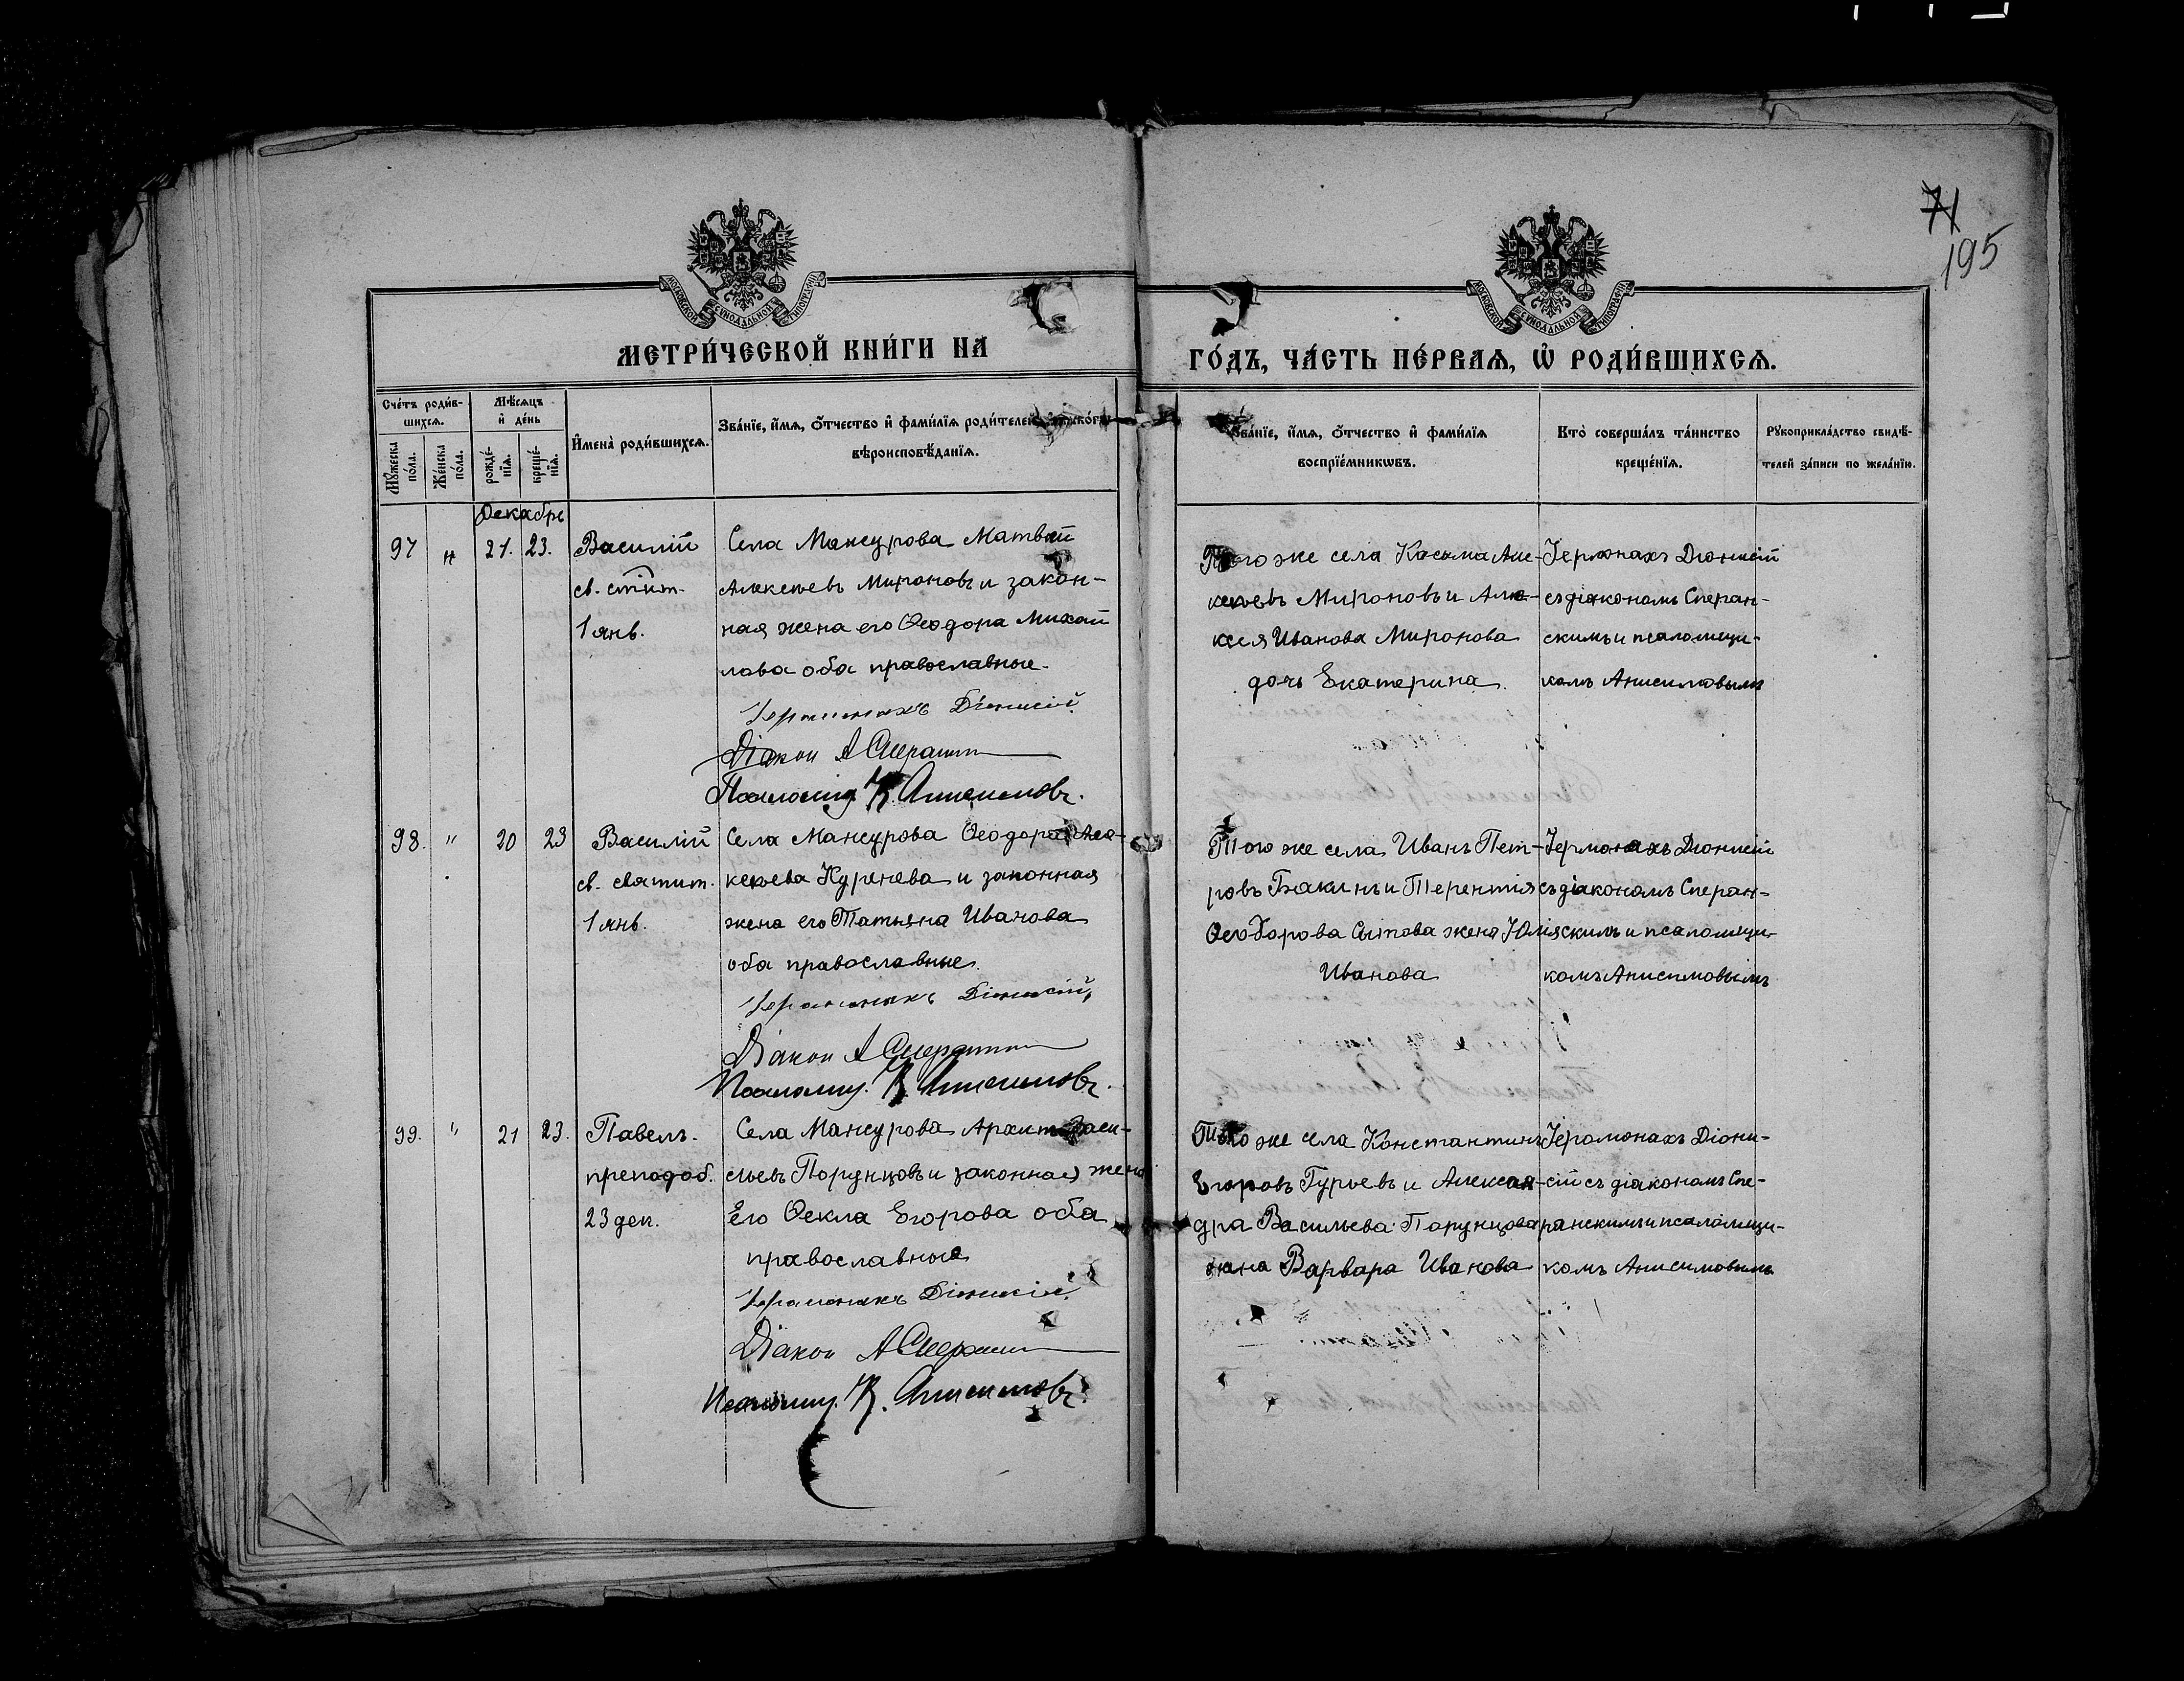 71
195
МОСКОВСКОЙ СѴНОДАЛЬНОЙ ТИПОГРАФІИ
МОСКОВСКОЙ СѴНОДАЛЬНОЙ ТИПОГРАФІИ
МЕТРИ́ЧЕСКОЙ КНИ́ГИ НА
ГО́ДЪ, ЧА́СТЬ ПЕ́РВАѦ, Ѿ РОДИ́ВШИХСѦ.
Сче́тъ роди́в-
шихсѧ.
Мꙋ́жеска
по́ла.
Же́нска
по́ла.
Мѣ́сѧцъ
и҆ де́нь
рожде́-
нїѧ.
креще́-
нїѧ.
И҆мена̀ роди́вшихсѧ.
Зва́нїе, и҆́мѧ, ѻ҆́тчество и҆ фами́лїѧ роди́телей,
вѣроисповѣ́данїѧ.
Зва́нїе, и҆́мѧ, ѻ҆́тчество и҆ фами́лїѧ
воспрїе́мникѡвъ.
Кто̀ соверша́лъ та́инство
креще́нїѧ.
Рꙋкоприкла́дство свидѣ́-
телей за́писи по жела́нїю.
Декабрь
97 " 21. 23. Василій
св. стит.
1 янв.
Села Мансурова Матвѣй
Алексѣевъ Мироновъ и закон-
ная жена его Ѳеодора Михай
лова оба православные.
Іеромонахъ Діонисій
Діакон А Сперанск
Псаломщ. К. Анисимовъ.
Того же села Косьма Але-
ксѣевъ Мироновъ и Але-
ксѣя Иванова Миронова
дочь Екатерина
Іермонахъ Діонисій
съ діакономъ Сперан-
скимъ и псаломщи-
комъ Анисимовымъ
98. " 20 23 Василій
св. святит.
1 янв.
Села Мансурова Ѳеодора Але-
ксѣева Куренева и законная
жена его Татьяна Иванова
оба православные.
Іеромонахъ Діонисій
Діакон А Сперанск
Псаломщ. К. Анисимовъ.
Того же села Иванъ Пет-
ровъ Бакинъ и Терентія
Ѳеодорова Сытова жена Юлія
Иванова
Іермонахъ Діонисій
съ діакономъ Сперан-
скимъ и псаломщи-
комъ Анисимовымъ
99. " 21 23. Павелъ.
преподоб.
23 дек.
Села Мансурова Архип Васи-
льевъ Порунцовъ и законная жена
Его Ѳекла Егорова оба
православные
Іеромонахъ Діонисій
Діакон А Сперанск
Псаломщ. К. Анисимовъ.
Того же села Константинъ
Егоровъ Гурьевъ и Алексан-
дра Васильева Порунцова
жена Варвара Иванова
Іеромонахъ Діони-
сій съ діакономъ Спе-
ранскимъ и псаломщи-
комъ Анисимовымъ